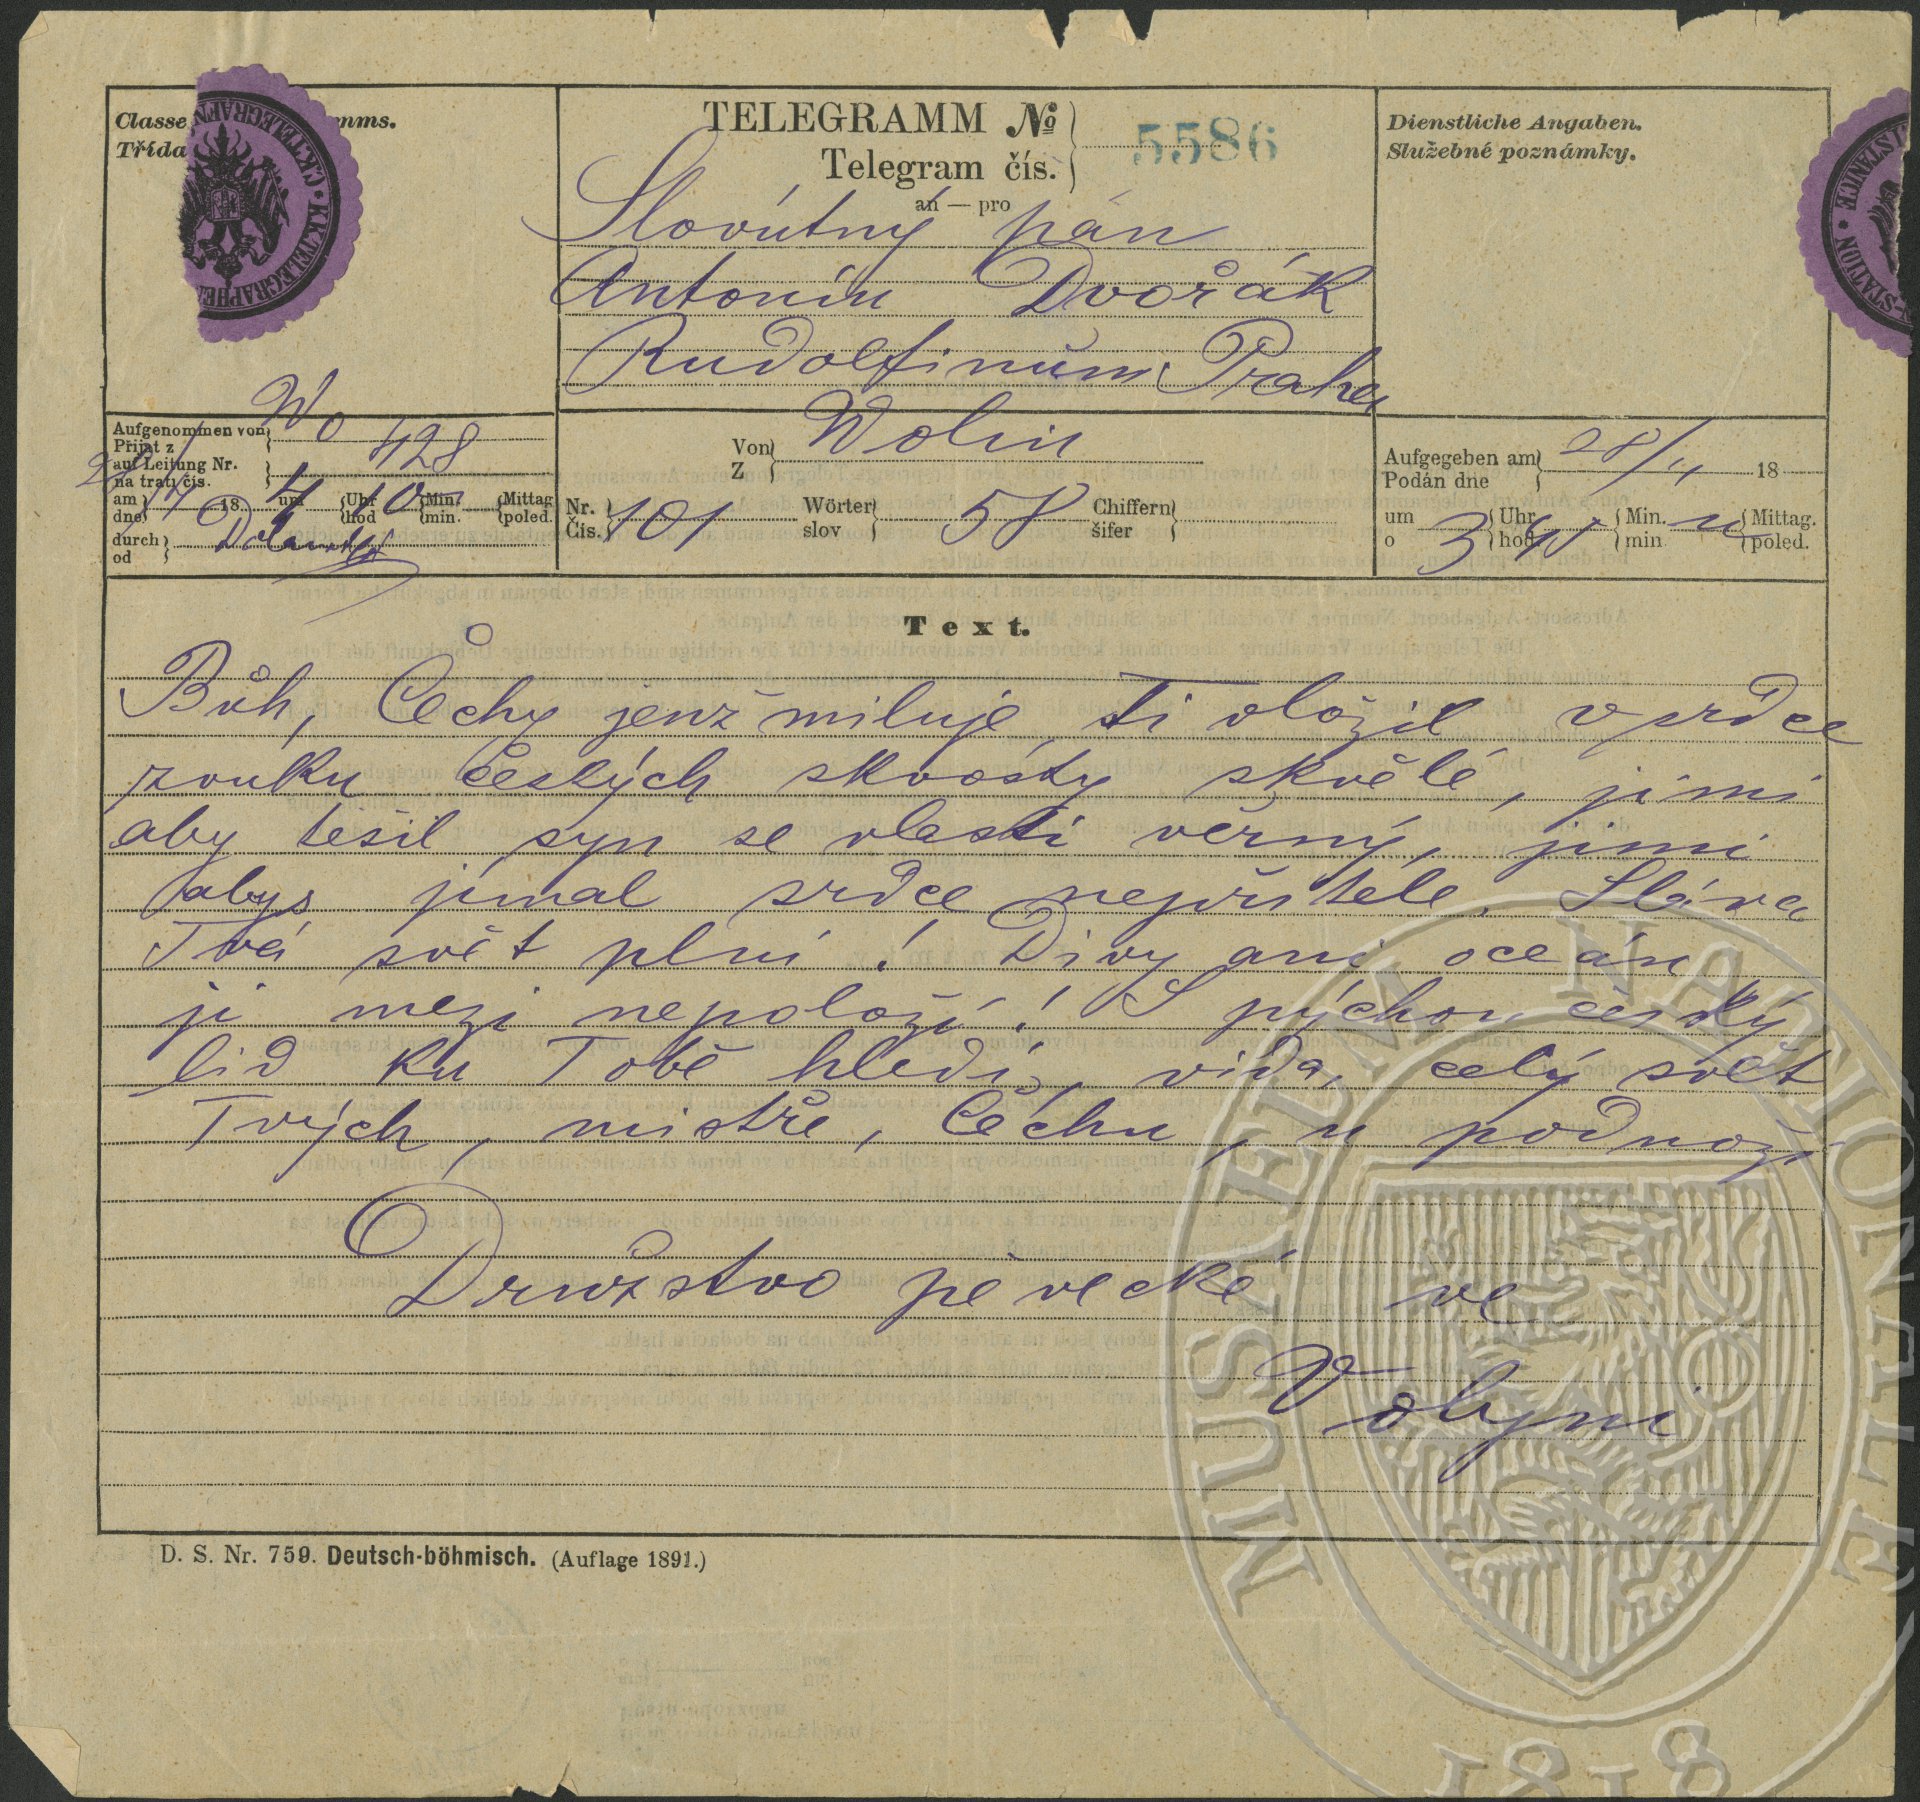 Classe mms.
Třída
TELEGRAMM No
Telegram čís.
5586
an — pro
Dienstliche Angaben.
Služebné poznámky.
K.K. TELEGRAPHE
C.K. TELEGRAFN
STATION
STANICE
Slovútný pán
Antonín Dvořák
Rudolfinum Praha
Aufgenommen von
Přijat z
Wo
auf Leitung Nr.
na trati čís.
428
am
dne
18
um
4
Uhr
hod
10
Min.
min.
Mittag
poled.
durch
od
Von
Z
Wolin
Nr.
Čís.
101
Wörter
slov
58
Chiffern
šifer
Aufgegeben am
Podán dne
28/4
18
um
o
3
Uhr
hod.
45
Min.
min.
Mittag.
poled.
Text.
Bůh, Čechy jenž miluje, ti vložil v srdce
zvuku českých skvosty skvělé, jimi
aby těšil syn se vlasti věrný, jimi
abys jímal srdce nepřítele. Sláva
Tvá svět plní! Divy ani oceán
jí mezí nepoloží! S pýchou český
lid ku Tobě hledí, vida, celý svět
Tvých, mistře, Čechu, u podnoží
Družstvo pěvecké ve
Volyni
D. S. Nr. 759. Deutsch-böhmisch. (Auflage 1891.)
MUSEUM NATIONALE
1818